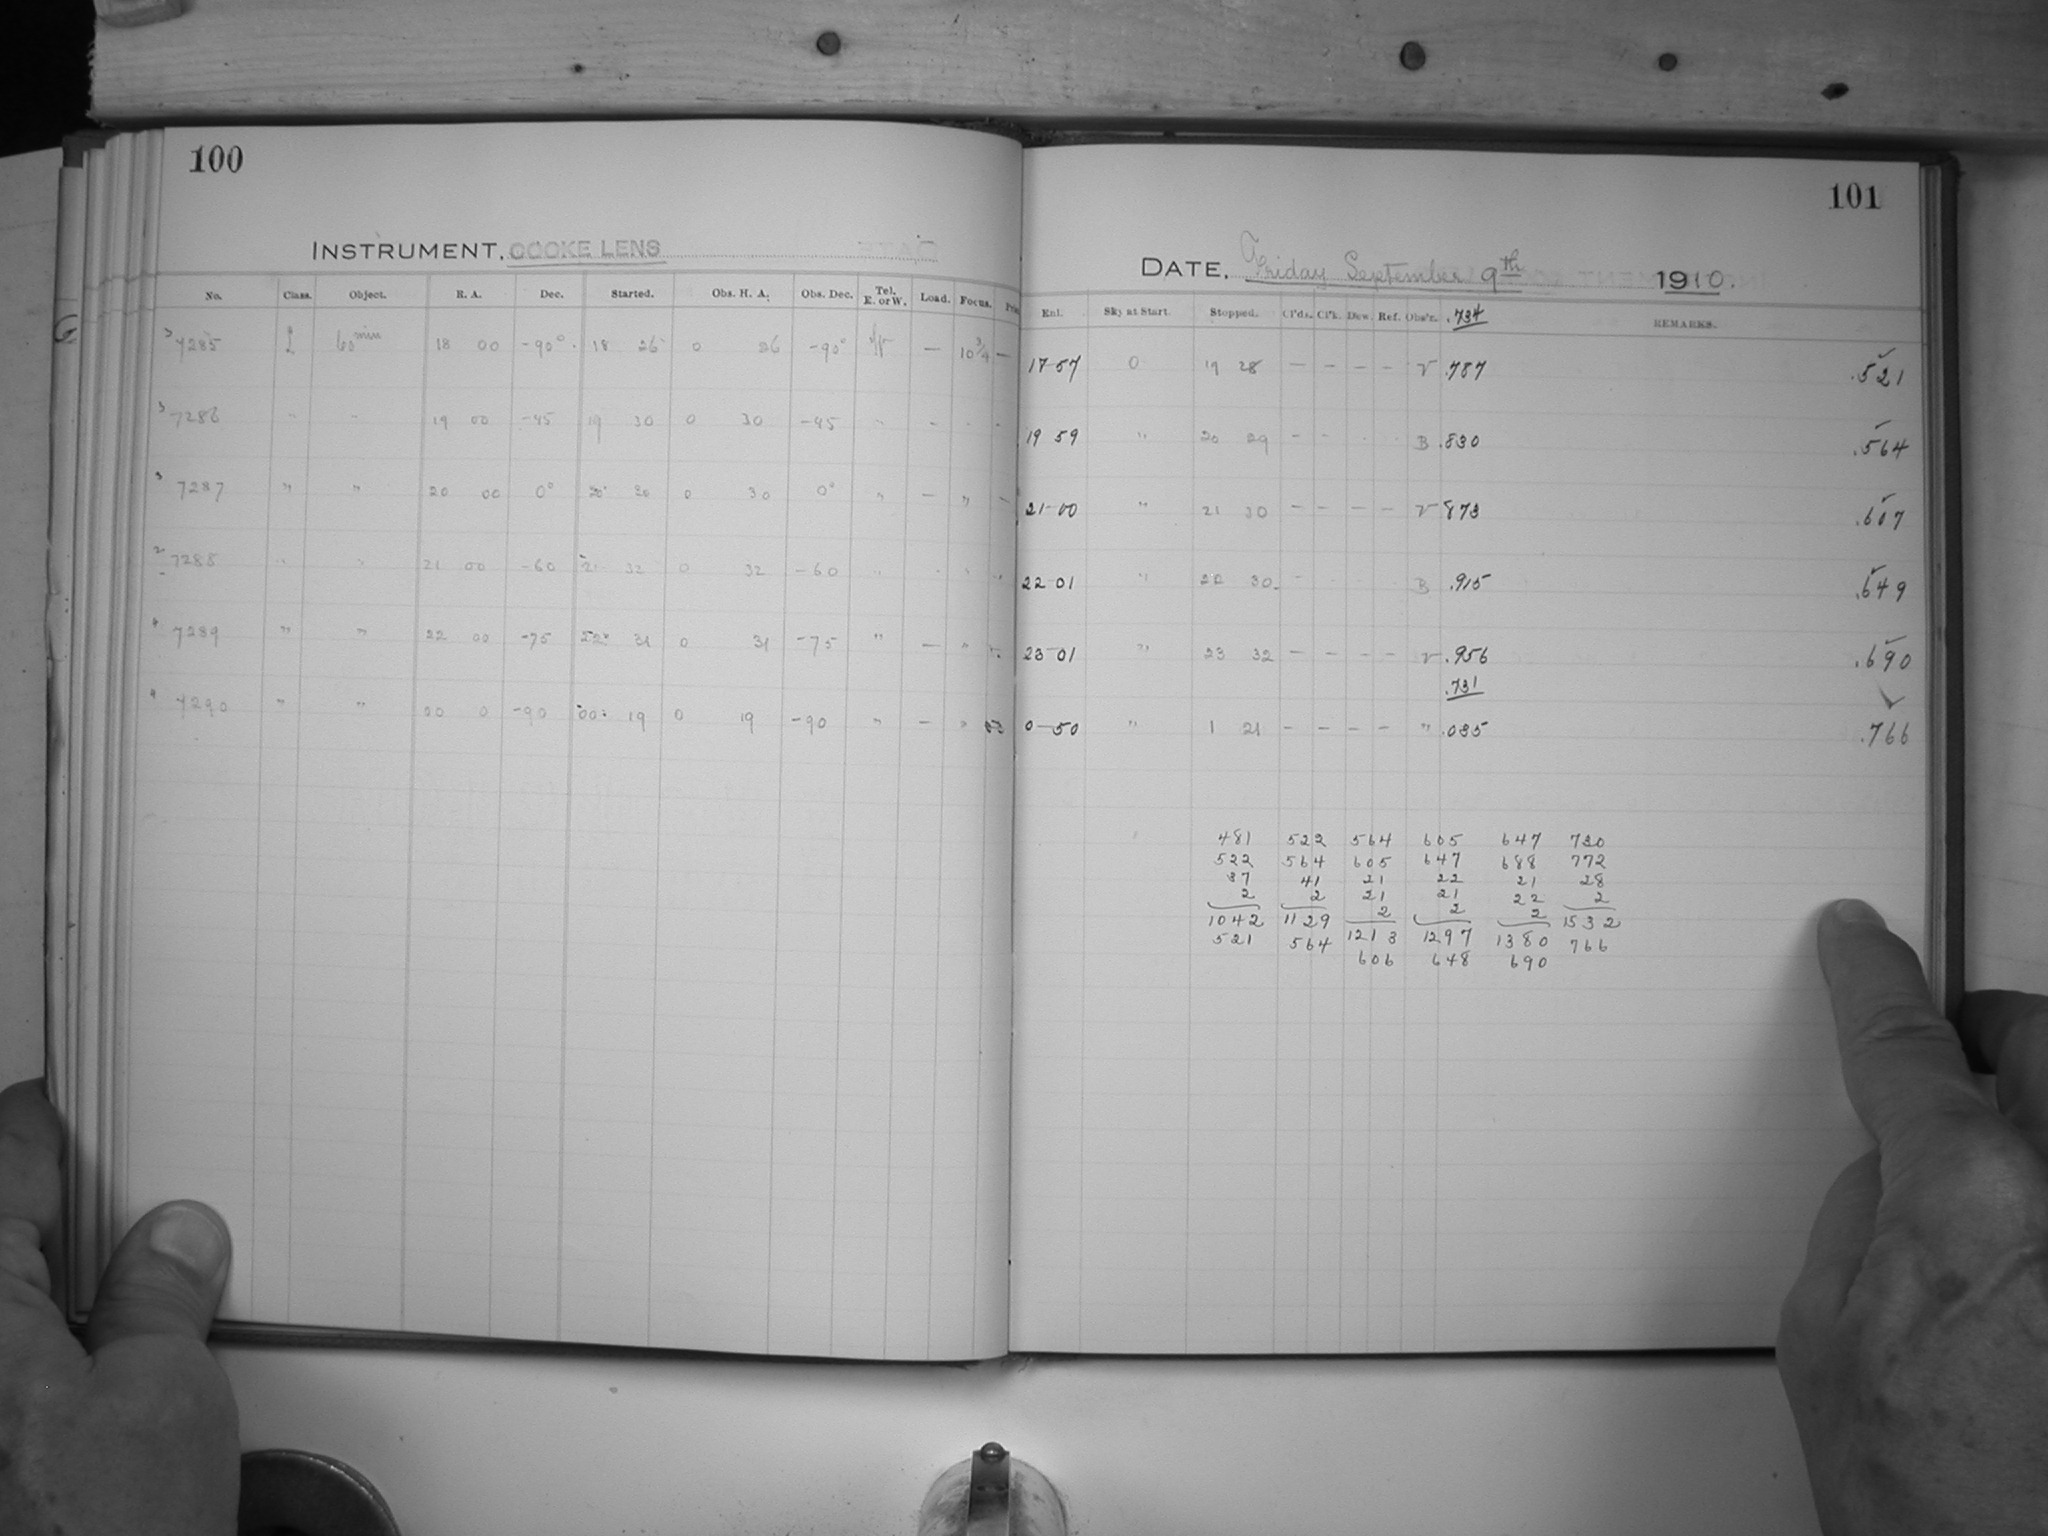 100
INSTRUMENT, COOKE LENS
No. Class. Object. R. A. Dec. Started. Obs. H. A. Obs. Dec. Tel. E. or W. Load. Focus.
3 7285 L 60 min 18 00 -90° 18 26 0 26 -90° — 10 3/4 —
3 7286 " " 19 00 -45 19 30 0 30 -45 " - - -
3 7287 " " 20 00 0° 20 30 0 30 0° " — " —
2 7288 " " 21 00 -60 21 32 0 32 -60 "
4 7289 " " 22 00 -75 22 31 0 31 -75 " — "
4 7290 " " 00 0 -90 00 19 0 19 -90 " — "
101
DATE, Friday September 9th 1910.
Ext. Sky at Start. Stopped. Cl'ds. Cl'k. Dew. Ref. Obs'r. .734 REMARKS.
17-57 0 19 28 — — — — V .787 .521
19 59 " 20 29 - - B .830 .564
21-00 " 21 30 — — — — V 873 .607
22 01 " 22 30 B .915 .649
23-01 " 23 32 — — — — V .956 .690
.731
0-50 " 1 21 — — — — " .035 .766
481 522 564 605 647 720
522 564 605 647 688 772
37 41 21 22 21 28
2 2 21 21 22 2
1042 1129 2 2 2 1532
521 564 1213 1297 1380 766
606 648 690